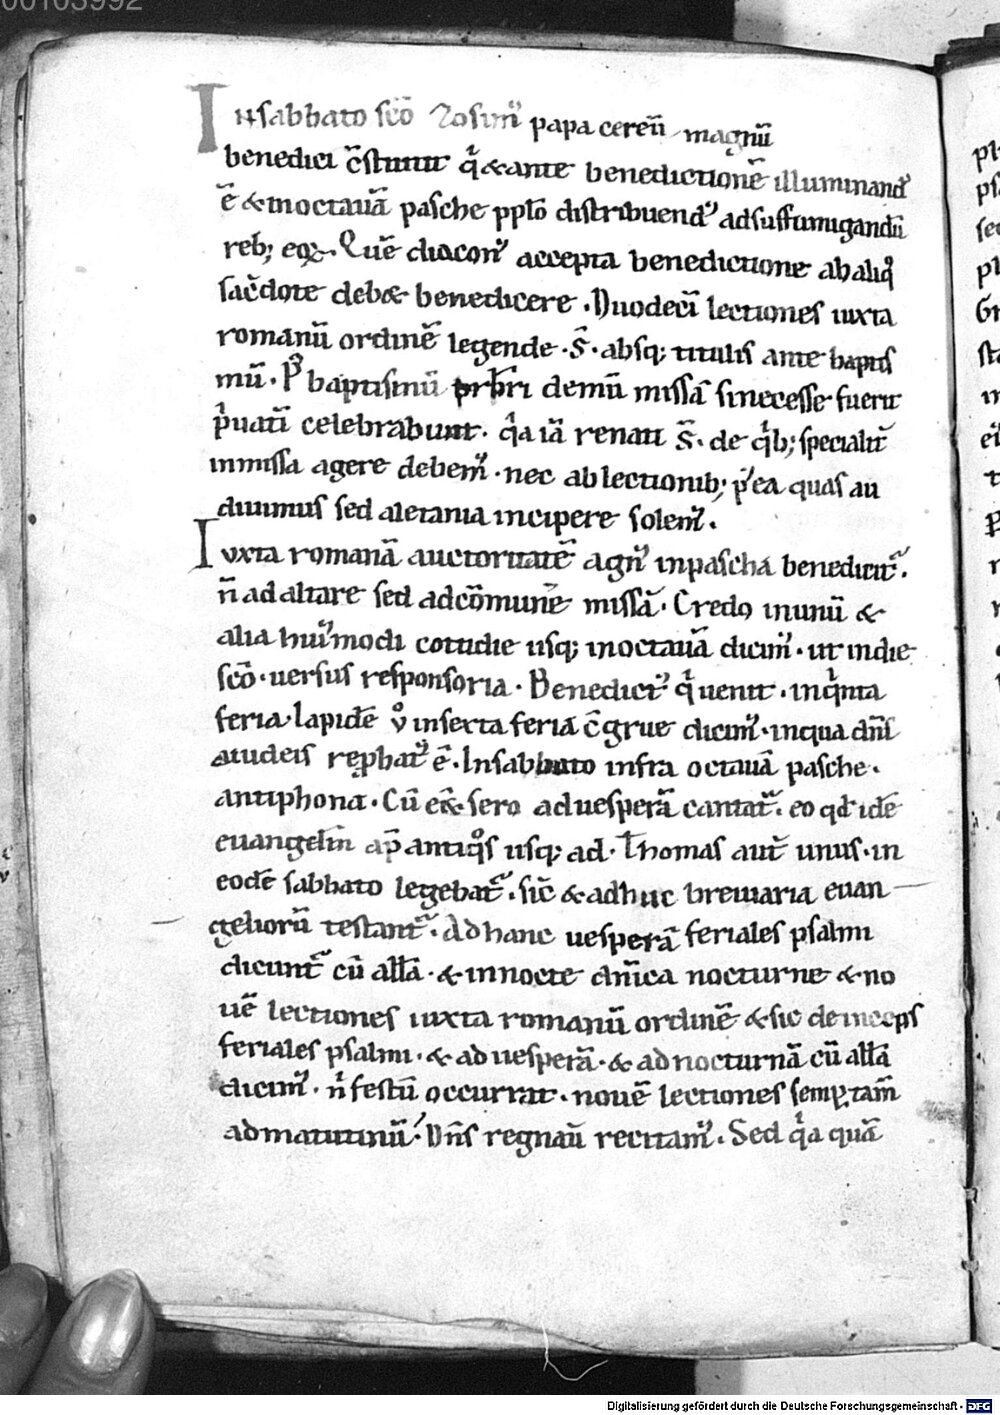 00103992
In sabbato sc̄o Zosimꝰ papa cereū magnū
benedici c̄stituit qͥ & ante benedictionē illuminandꝰ
ē & in octauā pasche pplō distribuendꝰ ad suffumigandū
reb; eoꝝ. Quē diaconꝰ accepta benedictione ab aliqͦ
sac̄dote deb& benedicere. Duodeci lectiones iuxta
romanū ordinē legende. s̄. absq; titulis ante baptis
mū. Pꝰ baptismū prb̄ri demū missā si necesse fuerit
pͥuatī celebrabunt. qͥa iā renati s̄. de qͥb; specialit̄
in missa agere debemꝰ. nec ab lectionib; p̄ea quas au
diuimus sed a letania incipere solemꝰ.
Iuxta romanā auctoritatē agnꝰ in pascha benedicit᷑.
n̄ ad altare sed ad cōmunē missā. Credo in unū &
alia huiꝰmodi cotidie usq; in octauā dicimꝰ. ut in die
sc̄o. uersus responsoria. Benedictꝰ qͥ uenit. in qͥnta
feria. lapidē v̊ in sexta feria c̄grue dicimꝰ. in qua dn̄s
a iudeis rep̱batꝰ ē. In sabbato infra octauā pasche.
antiphona. Cū eēt sero ad uesperā cantat᷑. eo qd̄ idē
euangeliū ap̄ antiqͦs usq; ad. Thomas aut̄ unus. in
eodē sabbato legebat᷑. sic̄ & adhuc breuiaria euan
geliorū testant᷑. Ad hanc uesperā feriales psalmi
dicunt᷑ cū allā. & in nocte dn̄ica nocturne & no
uē lectiones iuxta romanū ordinē & sic deinceps
feriales psalmi. & ad uesperā. & ad nocturnā cū allā
dicimꝰ. nͥ festū occurrat. nouē lectiones semp̱. tam̄
ad matutinū. Dn̄s regnau̅ recitamꝰ. Sed qͥa quā
Digitalisierung gefördert durch die Deutsche Forschungsgemeinschaft - DFG